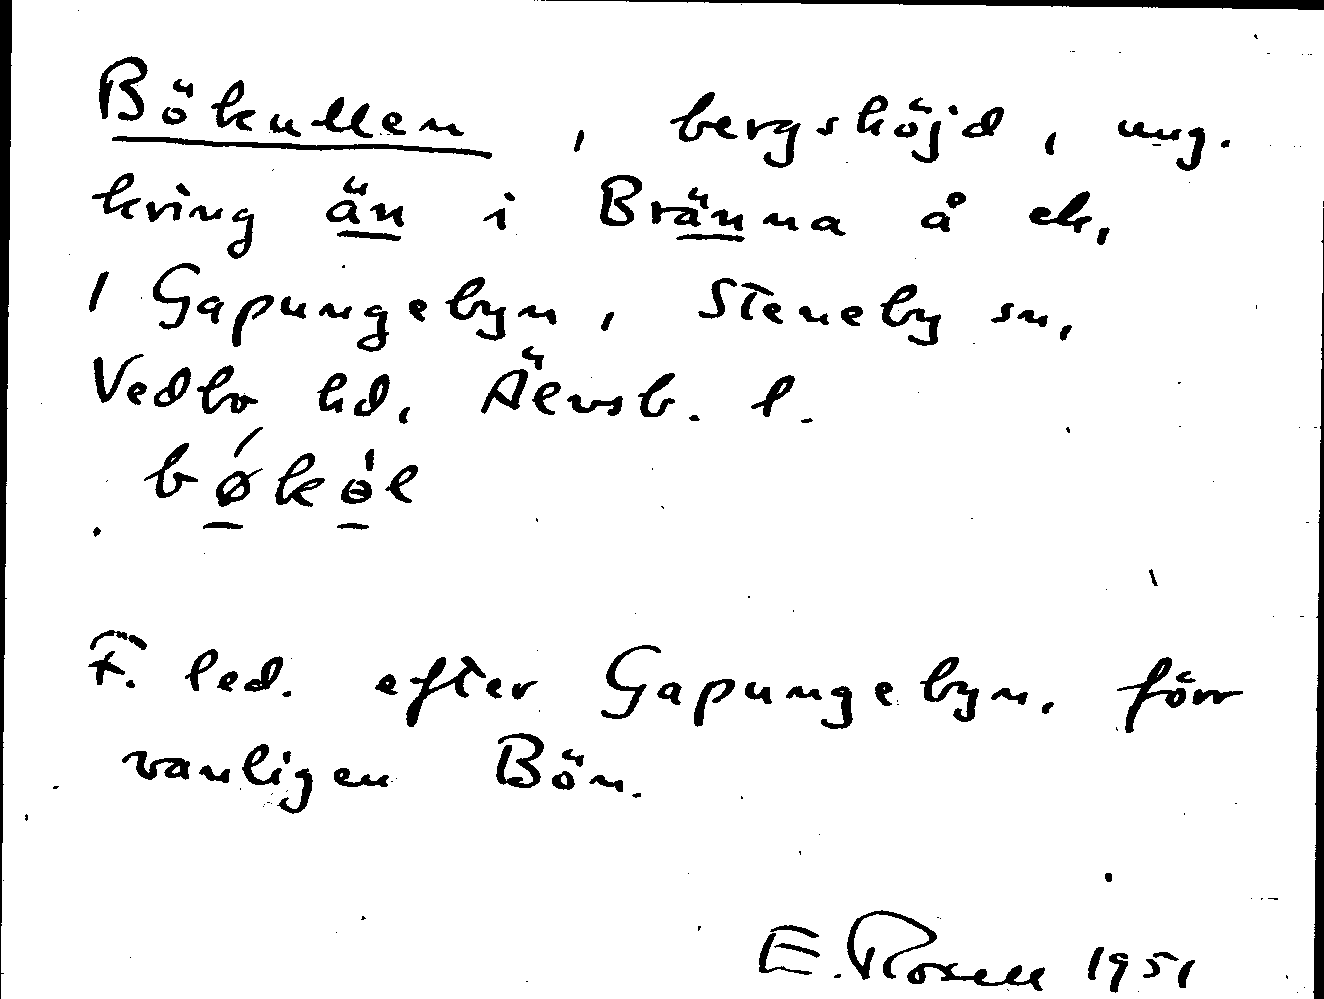 Bökullen, bergshöjd, ung.
kring än i Bränna å ek,
1 Gapungebyn, Steneby sn,
Vedbo hd, Älvsb. l.
bǿkѳ̀l
F. led. efter Gapungebyn, förr
vanligen Bön.
E. Rosell 1951